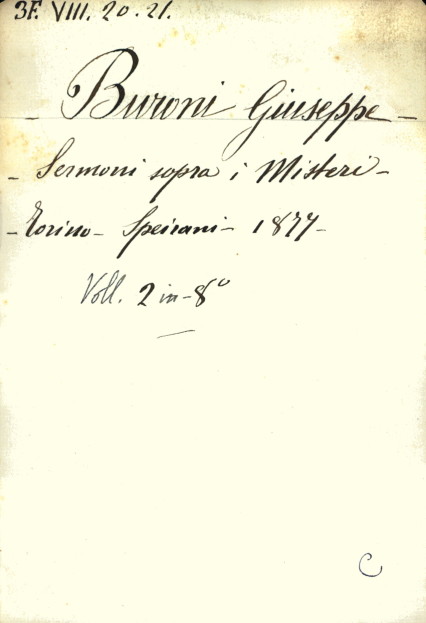 3F. VIII. 20. 21.
_ Buroni Giuseppe _
_ Sermoni sopra i Misteri _
_ Torino _ Speirani _ 1877 _
Voll. 2 in-8°
C